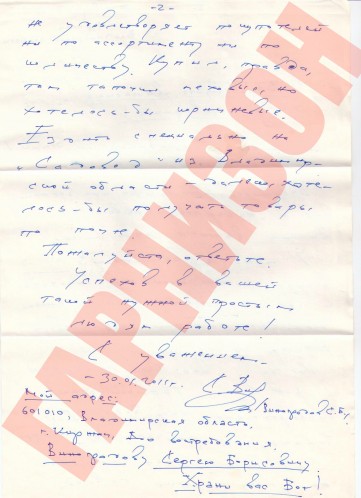 - 2 -
не удовлетворяет покупателей
ни по ассортименту ни по
количеству. Купил, правда,
там тапочки кожовые, но
хотелось-бы коричневые.
Ездить специально на
"Садовод" из Владимир-
ской области - далеко, хоте-
лось-бы получать товары
по почте.
Пожалуйста, ответьте.
Успехов в вашей
такой нужной простым
людям работе!
С уважением -
- 30.01.2011г.
/Виноградов С.Б./
Мой адрес:
601010, Владимирская область,
г. Киржач, До востребования.
Виноградову Сергею Борисовичу.
Храни вас Бог!
ГАРНИЗОН